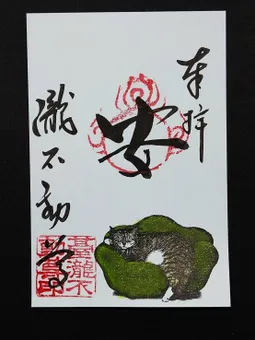 奉拝
安
瀧不動尊